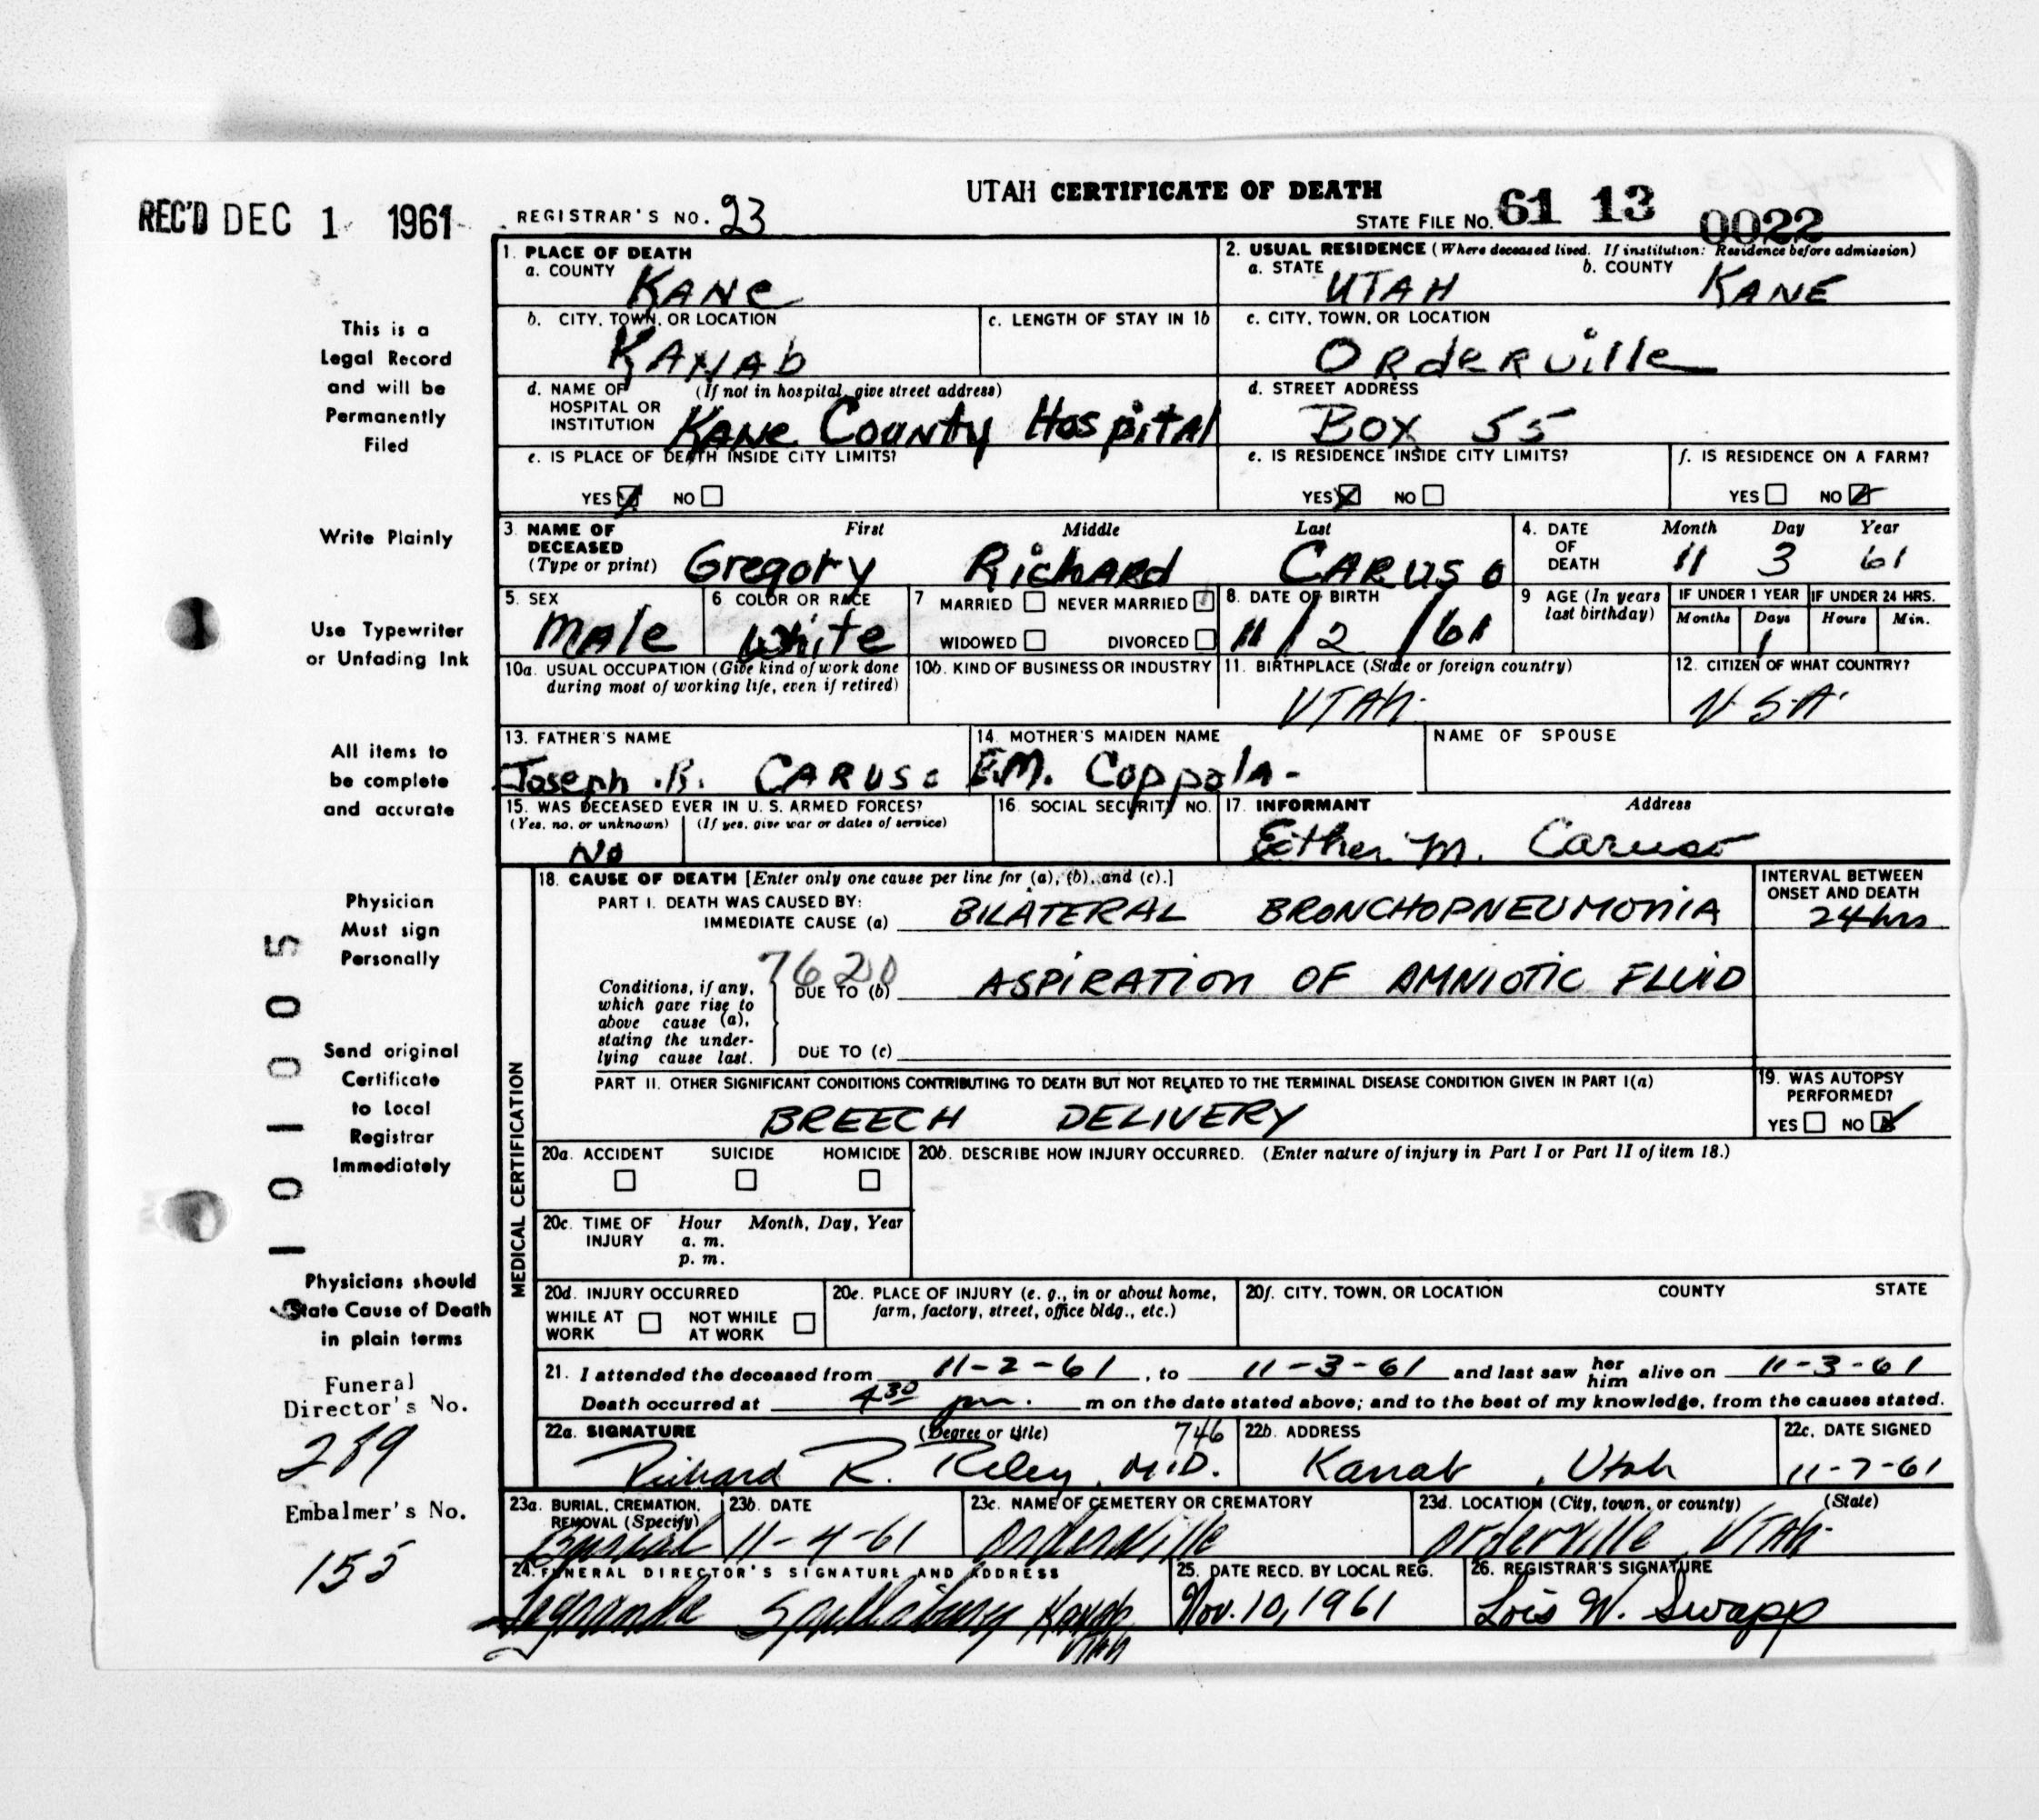 UTAH CERTIFICATE OF DEATH
REC'D DEC 1 1961
REGISTRAR'S NO. 23
STATE FILE NO. 61 13 0022
1. PLACE OF DEATH
a. COUNTY KANE
2. USUAL RESIDENCE (Where deceased lived. If institution: Residence before admission)
a. STATE UTAH b. COUNTY KANE
b. CITY, TOWN, OR LOCATION KANAb
c. LENGTH OF STAY IN 1b
c. CITY, TOWN, OR LOCATION ORderville
d. NAME OF HOSPITAL OR INSTITUTION (If not in hospital, give street address) KANe County Hospital
d. STREET ADDRESS Box 55
e. IS PLACE OF DEATH INSIDE CITY LIMITS?
YES NO
e. IS RESIDENCE INSIDE CITY LIMITS?
YES NO
f. IS RESIDENCE ON A FARM?
YES NO
3. NAME OF DECEASED (Type or print) First Middle Last
Gregory Richard CARUSO
4. DATE OF DEATH Month Day Year
11 3 61
5. SEX Male
6 COLOR OR RACE White
7 MARRIED NEVER MARRIED
WIDOWED DIVORCED
8. DATE OF BIRTH 11/2/61
9 AGE (In years last birthday)
IF UNDER 1 YEAR IF UNDER 24 HRS.
Months Days Hours Min.
1
10a. USUAL OCCUPATION (Give kind of work done during most of working life, even if retired)
10b. KIND OF BUSINESS OR INDUSTRY
11. BIRTHPLACE (State or foreign country) UTAh.
12. CITIZEN OF WHAT COUNTRY? USA.
13. FATHER'S NAME Joseph .R. CARUSO
14. MOTHER'S MAIDEN NAME E.M. Coppola-
NAME OF SPOUSE
15. WAS DECEASED EVER IN U.S. ARMED FORCES?
(Yes, no, or unknown) (If yes, give war or dates of service)
No
16. SOCIAL SECURITY NO.
17. INFORMANT Address
Esther M. Caruso
MEDICAL CERTIFICATION
18. CAUSE OF DEATH [Enter only one cause per line for (a), (b), and (c).]
PART I. DEATH WAS CAUSED BY:
IMMEDIATE CAUSE (a) BILATERAL BRONCHOPNEUMONIA
INTERVAL BETWEEN ONSET AND DEATH
24 hrs
Conditions, if any, which gave rise to above cause (a), stating the underlying cause last.
7620
DUE TO (b) ASPIRATION OF AMNIOTIC FLUID
DUE TO (c)
PART II. OTHER SIGNIFICANT CONDITIONS CONTRIBUTING TO DEATH BUT NOT RELATED TO THE TERMINAL DISEASE CONDITION GIVEN IN PART I(a)
BREECH DELIVERY
19. WAS AUTOPSY PERFORMED?
YES NO
20a. ACCIDENT SUICIDE HOMICIDE
20b. DESCRIBE HOW INJURY OCCURRED. (Enter nature of injury in Part I or Part II of item 18.)
20c. TIME OF INJURY Hour Month, Day, Year
a. m.
p. m.
20d. INJURY OCCURRED
WHILE AT WORK NOT WHILE AT WORK
20e. PLACE OF INJURY (e. g., in or about home, farm, factory, street, office bldg., etc.)
20f. CITY, TOWN, OR LOCATION COUNTY STATE
21. I attended the deceased from 11-2-61, to 11-3-61 and last saw her him alive on 11-3-61
Death occurred at 4 30 pm. m on the date stated above; and to the best of my knowledge, from the causes stated.
22a. SIGNATURE (Degree or title) 746
Richard R. Riley, M.D.
22b. ADDRESS Kanab, Utah
22c. DATE SIGNED 11-7-61
23a. BURIAL, CREMATION, REMOVAL (Specify) Burial
23b. DATE 11-4-61
23c. NAME OF CEMETERY OR CREMATORY Orderville
23d. LOCATION (City, town, or county) (State) Orderville UTAh
24. FUNERAL DIRECTOR'S SIGNATURE AND ADDRESS
Kanab Utah
25. DATE RECD. BY LOCAL REG. Nov. 10, 1961
26. REGISTRAR'S SIGNATURE Lois W. Swapp
This is a
Legal Record
and will be
Permanently
Filed
Write Plainly
Use Typewriter
or Unfading Ink
All items to
be complete
and accurate
Physician
Must sign
Personally
Send original
Certificate
to Local
Registrar
Immediately
Physicians should
State Cause of Death
in plain terms
Funeral
Director's No.
289
Embalmer's No.
155